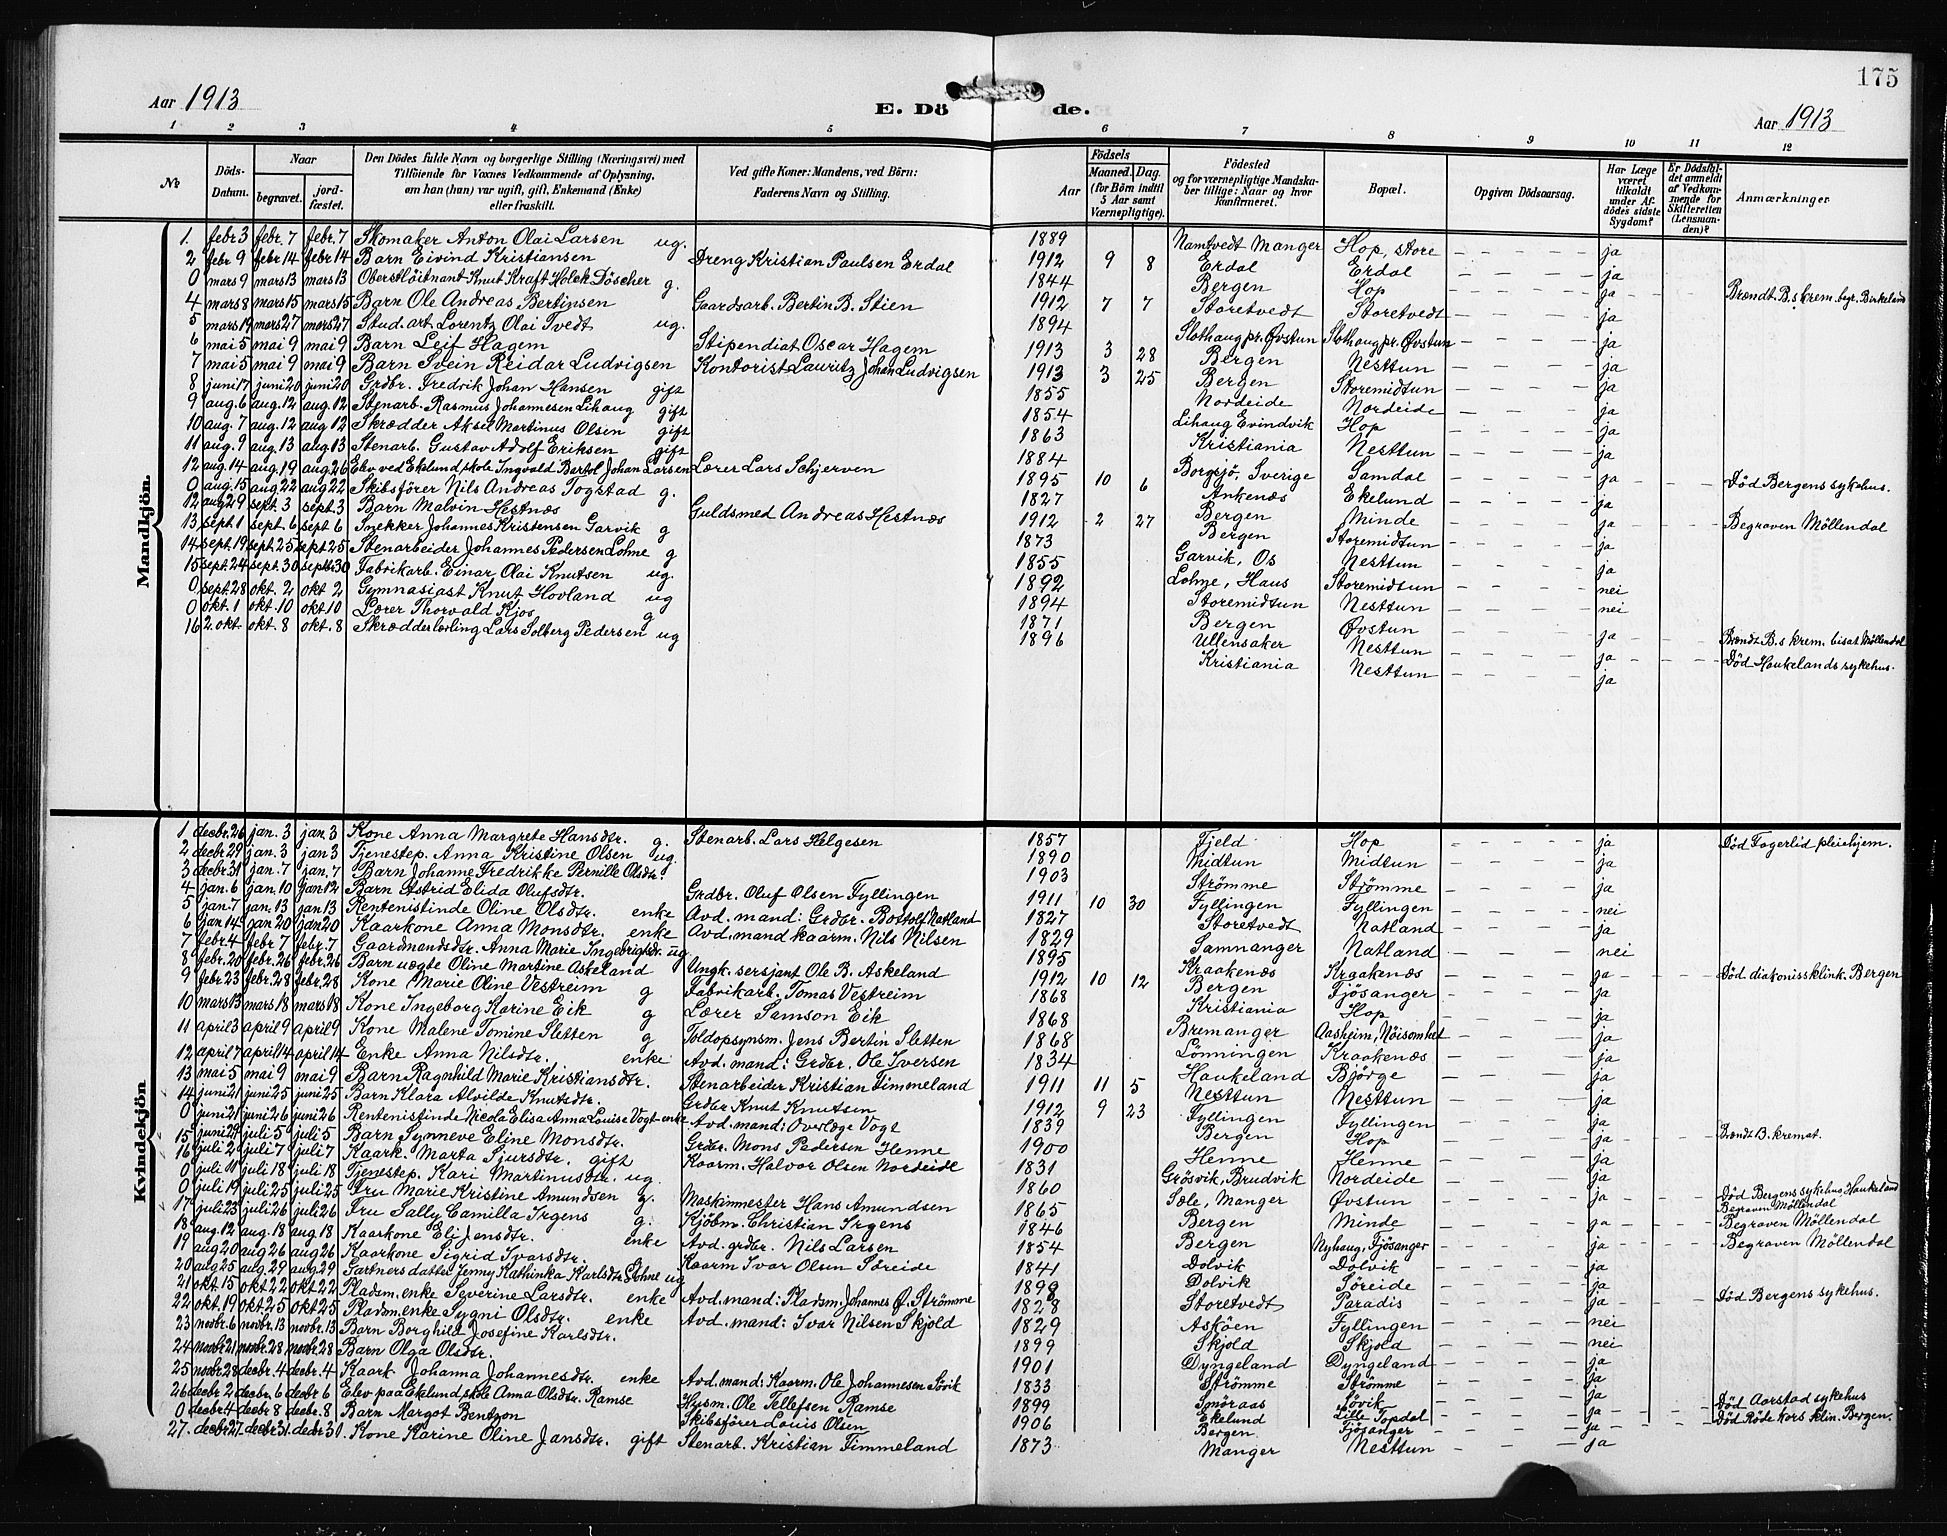 175
Aar 1913
E. Dö de.
Aar 1913
1 2 3 4 5 6 7 8 9 10 11 12
No
Döds-Datum.
Naar
begravet.
jord-fæstet.
Den Dödes fulde Navn og borgerlige Stilling (Næringsvei) med
Tilföiende for Voxnes Vedkommende af Oplysning,
om han (hun) var ugift, gift, Enkemand (Enke)
eller fraskilt.
Ved gifte Koner: Mandens, ved Börn:
Faderens Navn og Stilling.
Födsels
Aar
Maaned. Dag.
(for Börn indtil
5 Aar samt
Værnepligtige).
Födested
og for værnepligtige Mandska-
ber tillige: Naar og hvor
konfirmeret.
Bopæl.
Opgiven Dödsaarsag.
Har Læge
været
tilkaldt
under Af-
dödes sidste
Sygdom?
Er Dödsfal-
det anmeldt
af Vedkom-
mende for
Skifteretten
(Lensman-
den)?
Anmærkninger
Mandkjön.
1. febr 3 febr. 7 febr. 7 Skomaker Anton Olai Larsen ug. 1889 Namtvedt Manger Hop, store ja
2 febr 9 febr 14 febr 14 Barn Eivind Kristiansen Dreng Kristian Paulsen Erdal 1912 9 8 Erdal Erdal ja
0 mars 9 mars 13 mars 13 Oberstløitnant Knut Kraft Holck Döscher g. 1844 Bergen Hop ja Brændt B.s krem. begr. Birkeland
4 mars 8 mars 15 mars 15 Barn Ole Andreas Bertinsen Gaardsarb. Bertin B. Stien 1912 7 7 Storetvedt Storetvedt ja
5 mars 19 mars 27 mars 27 Stud. art. Lorentz Olai Tvedt ug. 1894 Slothaug pr. Øvstun Slothaug pr. Øvstun ja
6 mai 5 mai 9 mai 9 Barn Leif Hagem Stipendiat Oscar Hagem 1913 3 28 Bergen Nesttun ja
7 mai 5 mai 9 mai 9 Barn Svein Reidar Ludvigsen Kontorist Lauritz Johan Ludvigsen 1913 3 25 Bergen Storemidtun ja
8 juni 17 juni 20 juni 20 Grdbr. Fredrik Johan Hansen gift 1855 Nordeide Nordeide ja
9 aug. 6 aug. 12 aug. 12 Stenarb. Rasmus Johannesen Lihaug gift 1854 Lihaug Evindvik Hop ja
10 aug. 7 aug. 12 aug. 12 Skrædder Aksel Martinus Olsen gift 1863 Kristiania Nesttun ja
11 aug. 9 aug. 13 aug. 13 Stenarb. Gustav Adolf Eriksen gift 1884 Borgsjö, Sverige Samdal ja
12 aug. 14 aug. 19 aug. 26 Elev ved Eklund skole Ingvald Bartol Johan Larsen Lærer Lars Schjerven 1895 10 6 Ankenæs Ekelund ja Død Bergens sykehus.
0 aug. 15 aug. 22 aug 22 Skibsfører Nils Andreas Togstad g. 1827 Bergen Minde ja Begraven Möllendal
12 aug 29 sept. 3 sept. 3 Barn Malvin Hestnæs Guldsmed Andreas Hestnæs 1912 2 27 Bergen Storemidtun ja
13 sept. 1 sept. 6 sept. 6 Snekker Johannes Kristensen Garvik g 1873 Garvik, Os Nesttun ja
14 sept. 19 sept. 25 sept 25 Stenarbeider Johannes Pedersen Lohne g 1855 Lohne, Haus Storemidtun nei
15 sept. 24 sept. 30 sept. 30 Fabrikarb. Einar Olai Knutsen ug. 1892 Storemidtun Nesttun nei
0 sept. 28 okt. 2 okt 2 Gymnasiast Knut Hovland ug 1894 Bergen Øvstun ja Brændt B.s krem. bisat Möllendal
0 okt. 1 okt. 10 okt. 10 Lærer Thorvald Kjos g 1871 Ullensaker Nesttun ja Död Haukelands sykehus.
16 2. okt okt. 8 okt. 8 Skrædderlærling Lars Solberg Pedersen ug 1896 Kristiania Nesttun ja
Kvindekjön
1 decbr. 26 jan. 3 jan. 3 Kone Anna Margrete Hansdtr. g. Stenarb. Lars Helgesen 1857 Fjeld Hop ja Död Fagerlid pleiehjem.
2 decbr 29 jan. 3 jan 3 Tjenestep. Anna Kristine Olsen ug. 1890 Midtun Midtun ja
3 decbr 31 jan. 7 jan. 7 Barn Johanne Fredrikke Pernille Olsdtr. 1903 Strømme Strømme ja
4 jan. 6 jan. 10 jan 12 Barn Astrid Elida Olufsdtr. Grdbr. Oluf Olsen Fyllingen 1911 10 30 Fyllingen Fyllingen nei
5 jan. 7 jan. 13 jan 13 Rentenistinde Oline Olsdtr. enke Avd. mand: Grdbr. Bottolf Natland 1827 Storetvedt Natland ja
6 jan 14 jan 20 jan 20 Kaarkone Anna Monsdtr. enke Avd. mand kaarm. Nils Nilsen 1829 Samnanger Natland nei
7 febr. 4 febr. 7 febr. 7 Gaardmandsdtr. Anna Marie Ingebrigtsdtr. ug 1895 Kraakenæs Kraakenæs ja Död diakonissklink. Bergen
8 febr. 20 febr. 26 febr. 26 Barn uægte Oline Martine Askeland Ungk. sersjant Ole B. Askeland 1912 10 12 Bergen Fjösanger ja
9 febr 23 febr. 28 febr. 28 Kone Marie Oline Vestreim g Fabrikarb. Tomas Vestreim 1868 Kristiania Hop ja
10 mars 13 mars 18 mars 18 Kone Ingeborg Karine Eik g Lærer Samson Eik 1868 Bremanger Aasheim, Nöisomhet ja
11 april 3 april 9 april 9 Kone Malene Tomine Sletten g Toldopsynsm. Jens Bertin Sletten 1868 Lønningen Kraakenæs ja
12 april 7 april 14 april 14 Enke Anna Nilsdtr. enke Avd. mand: Grdbr. Ole Iversen 1834 Haukeland Bjørge ja
13 mai 5 mai 9 mai 9 Barn Ragnhild Marie Kristiansdtr. Stenarbeider Kristian Timmeland 1911 11 5 Nesttun Nesttun ja
14 juni 21 juni 25 juni 25 Barn Klara Alvilde Knutsdtr. Grdbr Knut Knutsen 1912 9 23 Fyllingen Fyllingen ja
0 juni 21 juni 26 juni 26 Rentenistinde Nicola Elisa Anna Louise Vogt enke Avd. mand: Overlæge Vogt 1839 Bergen Hop ja Brændt B. kremat.
15 juni 29 juli 5 juli 5 Barn Synneve Eline Monsdtr. Grdbr. Mons Pedersen Henne 1900 Henne Henne ja
16 juli 2 juli 7 juli 7 Kaark. Marta Sjursdtr. gift Kaarm. Halvor Olsen Nordeide 1831 Grösvik, Brudvik Nordeide ja
0 juli 11 juli 18 juli 18 Tjenestep. Kari Martinusdtr. ug. 1860 Sæle, Manger Øvstun ja Död Bergens sykehus Haukeland
0 juli 19 juli 25 juli 25 Fru Marie Kristine Amundsen g. Maskinmester Hans Amundsen 1865 Bergen Minde ja Begraven Möllendal
17 juli 23 juli 26 juli 26 Fru Sally Camilla Irgens g. Kjöbm. Christian Irgens 1846 Bergen Nyhaug, Fjösanger ja Begraven Möllendal
Begraven Möllendal
18 aug. 12 aug. 18 aug. 18 Kaarkone Eli Jensdtr. enke Avd. grdbr. Nils Larsen 1854 Dolvik Dolvik ja
19 aug 20 aug 26 aug 26 Kaarkone Sigrid Ivarsdtr. g Kaarm Ivar Olsen Søreide 1841 Dolvik Søreide ja
20 aug 25 aug. 29 aug. 29 Gartners datter Jenny Kathinka Karlsdtr. Lohne ug 1898 Storetvedt Paradis ja Död Bergens sykehus.
21 okt. 15 okt 22 okt. 22 Pladsm. enke Severine Larsdtr. enke Avd. mand: Pladsm. Johannes Ø. Strömme 1828 Askøen Fyllingen nei
22 okt. 19 okt. 25 okt 25 Pladsm. enke Sygni Olsdtr. enke Avd. mand: Ivar Nilsen Skjold 1829 Skjold Skjold nei
23 novbr. 6 novbr. 13 novbr. 13 Barn Borghild Josefine Karlsdtr. 1899 Dyngeland Dyngeland ja
24 novbr 21 novbr. 28 novbr. 28 Barn Olga Olsdtr. 1901 Strömme Strömme ja
25 novbr. 28 decbr. 4 decbr. 4 Kaark Johanna Johannesdtr. enke Avd. mand: Kaarm. Ole Johannesen Søvik 1833 Smöraas Søvik ja
26 decbr 2 decbr. 6 decbr. 6 Elev paa Ekelund skole Anna Olsdtr. Ramse Husm. Ole Tellefsen Ramse 1899 Ekelund Lille Topdal ja Död Aarstad sykehus
0 decbr. 4 decbr. 8 decbr. 8 Barn Margot Bentzon Skibsfører Louis Olsen 1906 Bergen Fjösanger ja Död Røde kors klin. Bergen.
27. decbr 27 decbr 31. decbr 31. Kone Karine Oline Jansdtr. gift Stenarb. Kristian Timmeland 1873 Manger Nesttun ja